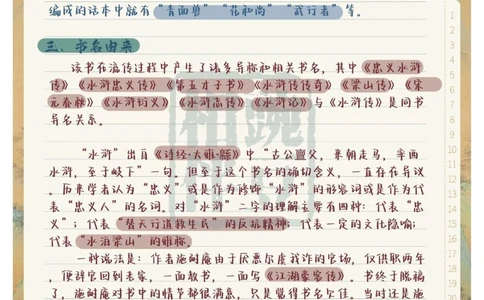 编成的话本中就有“青面兽”“花和尚”“武行者”等。
三、书名由来
该书在流传过程中产生了诸多异称和相关书名，其中《忠义水浒
传》《水浒忠义传》《第五才子书》《水浒传传奇》《梁山传》《宋
元春秋》《水浒衍义》《水浒高传》《水浒论》与《水浒传》是同书
异名关系。
“水浒”出自《诗经·大雅·緜》中“古公亶父，来朝走马，率西
水浒，至于岐下”一句，但至于这个书名的确切含义，一直存在异议
。历来学者认为“忠义”或是作为修饰“水浒”的形容词或是作为代
表“忠义人”的名词。对“水浒”二字的理解主要有四种：代表“忠
义”；代表“替天行道救生民”的反抗精神；代表一定的文化隐喻；
代表“水泊梁山”的雅称。
一种说法是：作者施耐庵由于厌恶尔虞我诈的官场，仅供职两年
，便辞官回到老家，一面教书，一面写《江湖豪客传》。书终于脱稿
了，施耐庵对书中的情节都很满意，只是觉得书名欠佳，当时还是施
1
2
3
4
5
6
7
8
9
10
11
12
13
14
15
16
17
18
19
20